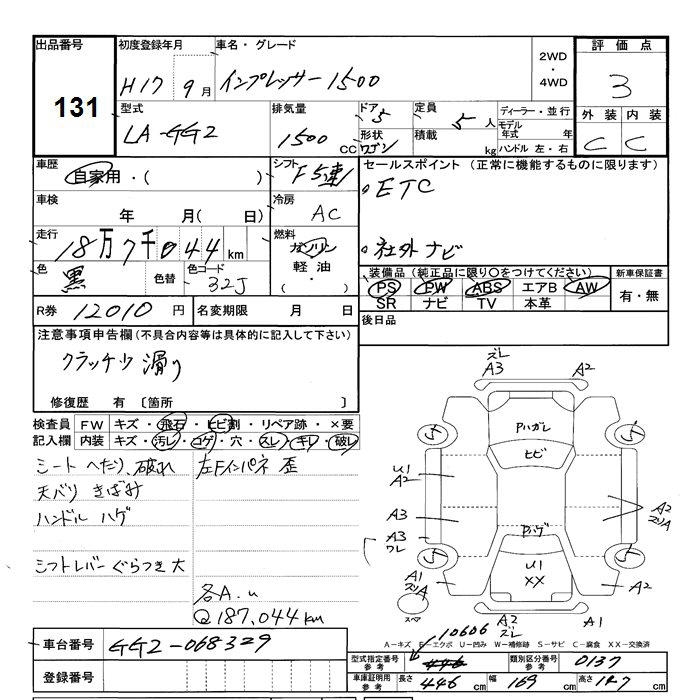 出品番号 131
初度登録年月 H17 9月
車名・グレード インプレッサー 1500
2WD・4WD
評価点 3
外装 C 内装 C
型式 LA-GG2
排気量 1500 CC
ドア 5
形状 ワゴン
定員 5人
積載 kg
ディーラー・並行
モデル年式 年
ハンドル 左・右
車歴 自家用・( )
シフト F5速
セールスポイント (正常に機能するものに限ります)
ETC
社外ナビ
車検 年 月( 日)
冷房 AC
走行 18万7千044km
燃料 ガソリン 軽油・( )
色 黒 色替 色コード 32J
装備品 (純正品に限り〇をつけてください)
PS PW ABS エアB AW
SR ナビ TV 本革
新車保証書 有・無
R券 12010円
名変期限 月 日
後日品
注意事項申告欄 (不具合内容等は具体的に記入して下さい)
クラッチ 滑り
修復歴 有 〔箇所 〕
検査員記入欄
FW キズ・飛石・ヒビ割・リペア跡・×要
内装 キズ・汚レ・コゲ・穴・スレ・キレ・破レ
シート へたり、破れ 左Fインパネ 歪
天バリ きばみ
ハンドル ハゲ
シフトレバー ぐらつき 大
各A.u
Q187,044km
ズレ
A3 A2
Pハガレ
ヒビ
5 5
U1
A2
A3 A2
A3
ワレ
Pハゲ
5 5
U1
XX
A1 A2
スペア
A2 A1
ズレ
A-キズ E-エクボ U-凹み W-補修跡 S-サビ C-腐食 XX-交換済
車台番号 GG2-068329
登録番号
型式指定番号 参考 10606
類別区分番号 参考 0137
車庫証明用 参考 長さ 446cm 幅 169cm 高さ 147cm